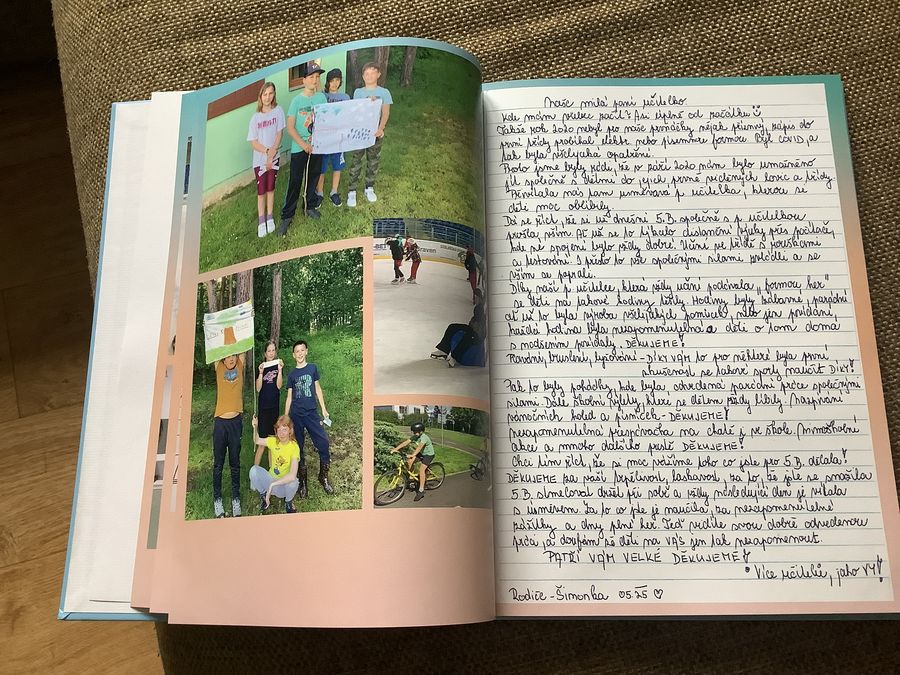 Naše milá paní učitelko.
Kde mám vůbec začít? Asi úplně od začátku
Takže rok 2020 nebyl pro naše prvňáčky nějak příjemný, zápis do
první třídy probíhal elektr. nebo písemnou formou. Byl COVID, a
tak byla všelijaká opatření.
Proto jsme byly rádi, že v září 2020 nám bylo umožněno
jít společně s dětmi do jejich prvně školních lavic a třídy.
Přivítala nás tam usměvavá p. učitelka, kterou si
děti moc oblíbily.
Dá se říct, že si už dnešní 5.B. společně s p. učitelkou
prošla vším. Ať už se to týkalo distanční výuky přes počítače,
kde ne spojení bylo vždy dobré. Učení ve třídě s rouškami
a testování. I přesto to vše společnými silami zvládli a se
vším se poprali.
Díky naší p. učitelce, která vždy učení podávala "formou her"
se děti na takové hodiny těšily. Hodiny byly zábavné, parádní
ať už to byla výroba všelijakých pomůcek, nebo jen povídání,
každá hodina byla nezapomenutelná a děti o tom doma
s nadšením povídaly. DĚKUJEME!
Plavání, bruslení, lyžování - DÍKY VÁM to pro některé byla první
zkušenost se takové sporty naučit. DÍKY!
Pak to byly pohádky, kde byla odvedená parádní práce společnými
silami. Dále školní výlety, které se dětem vždy líbily. Nazpívání
vánočních koled a písniček - DĚKUJEME!
Nezapomenutelná přespávačka na chatě i ve škole. Mimoškolní
akce a mnoho dalšího pestré DĚKUJEME!
Chci tím říct, že si moc vážíme toho co jste pro 5.B. dělala!
DĚKUJEME za vaši trpělivost, laskavost, za to, že jste se snažila
5.B. stmelovat držet při sobě a vždy následující den je vítala
s úsměvem. Za to co jste je naučila, za nezapomenutelné
zážitky a dny plné her. Teď vidíte svou dobře odvedenou
práci, a doufám že děti na VÁS jen tak nezapomenout.
PATŘÍ VÁM VELKÉ DĚKUJEME!
Více učitelů, jako VY!
Rodiče - Šimonka 05.25